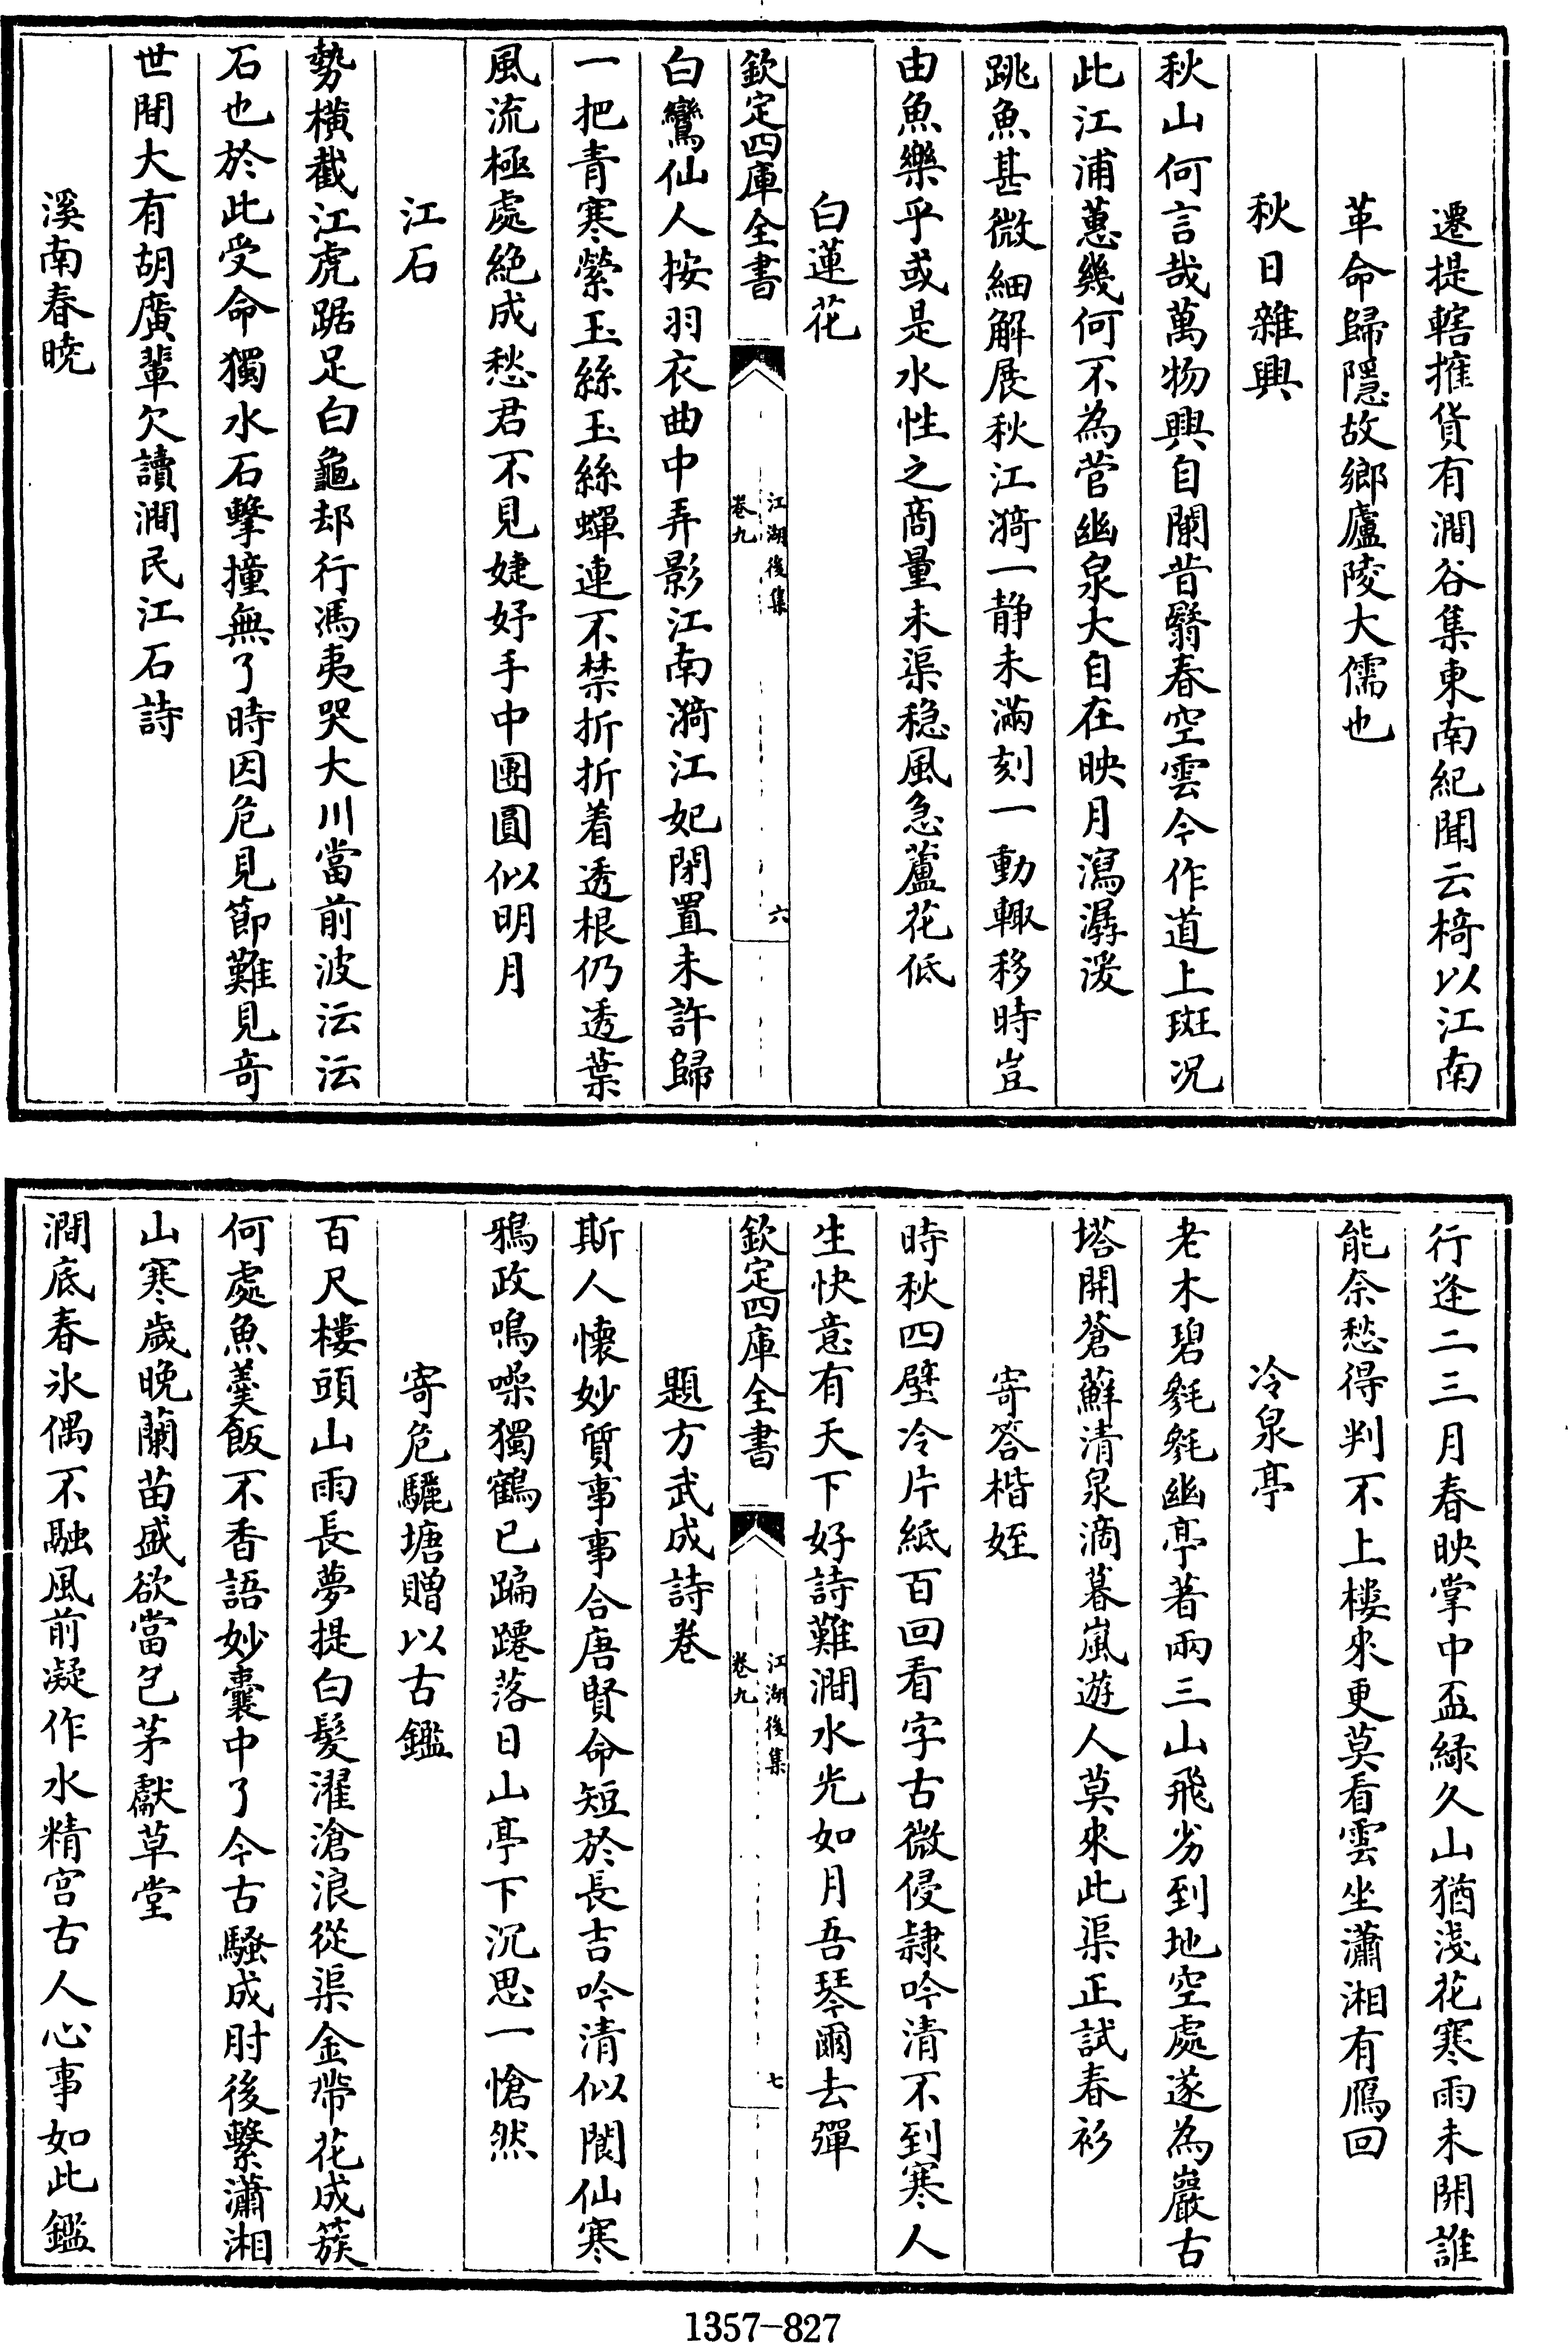 遷提轄搉貨有澗谷集東南紀聞云椅以江南
革命歸隱故鄉廬陵大儒也
秋日雜興
秋山何言哉萬物興自闌昔翳春空雲今作道上斑况
此江浦蕙幾何不為菅幽泉大自在映月瀉潺湲
跳魚甚微細解展秋江漪一静未滿刻一動輒移時豈
由魚樂乎或是水性之商量未渠稳風急蘆花低
白蓮花
欽定四庫全書
江湖後集
卷九
六
白鸞仙人按羽衣曲中弄影江南漪江妃閉置未許歸
一把青寒縈玉絲玉絲蟬連不禁折折着透根仍透葉
風流極處絶成愁君不見婕妤手中團圓似明月
江石
勢横截江虎踞足白龜却行馮夷哭大川當前波沄沄
石也於此受命獨水石擊撞無了時因危見節難見奇
世間大有胡廣輩欠讀澗民江石詩
溪南春曉
行逢二三月春映掌中盃緑久山猶淺花寒雨未開誰
能奈愁得判不上樓來更莫看雲坐瀟湘有鴈回
冷泉亭
老木碧毿毿幽亭著兩三山飛劣到地空處遂為巖古
塔開蒼蘚清泉滴暮嵐遊人莫來此渠正試春衫
寄答楷姪
時秋四壁冷片紙百回看字古微侵隷吟清不到寒人
生快意有天下好詩難澗水光如月吾琴爾去彈
題方武成詩卷
欽定四庫全書
江湖後集
卷九
七
斯人懷妙質事事合唐賢命短於長吉吟清似閬仙寒
鴉政鳴噪獨鶴已蹁躚落日山亭下沉思一愴然
寄危驪塘贈以古鑑
百尺樓頭山雨長夢提白髮濯滄浪從渠金帶花成簇
何處魚羹飯不香語妙囊中了今古騷成肘後繫瀟湘
山寒歲晚蘭苗盛欲當包茅獻草堂
澗底春氷偶不融風前凝作水精宫古人心事如此鑑
1357-827